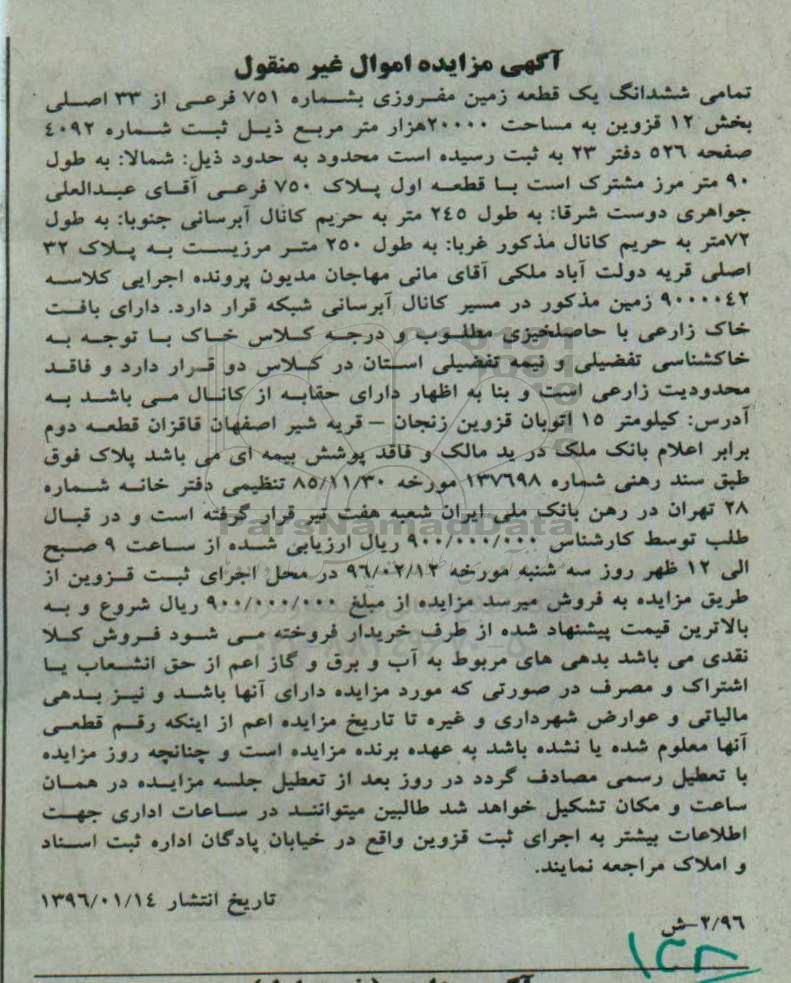 آگهی مزایده اموال غیر منقول
تمامی ششدانگ یک قطعه زمین مفروزی بشماره ۷۵۱ فرعی از ۳۳ اصلی
بخش ۱۲ قزوین به مساحت ۲۰۰۰۰هزار متر مربع ذیل ثبت شماره ٤۰۹۲
صفحه ۵۲٦ دفتر ۲۳ به ثبت رسیده است محدود به حدود ذیل: شمالا: به طول
۹۰ متر مرز مشترک است با قطعه اول پلاک ۷۵۰ فرعی آقای عبدالعلی
جواهری دوست شرقا: به طول ۲٤۵ متر به حریم کانال آبرسانی جنوبا: به طول
۷۲متر به حریم کانال مذکور غربا: به طول ۲۵۰ متر مرزیست به پلاک ۳۲
اصلی قریه دولت آباد ملکی آقای مانی مهاجان مدیون پرونده اجرایی کلاسه
۹۰۰۰۰٤۲ زمین مذکور در مسیر کانال آبرسانی شبکه قرار دارد. دارای بافت
خاک زارعی با حاصلخیزی مطلوب و درجه کلاس خاک با توجه به
خاکشناسی تفضیلی و نیمه تفضیلی استان در کلاس دو قرار دارد و فاقد
محدودیت زارعی است و بنا به اظهار دارای حقابه از کانال می باشد به
آدرس: کیلومتر ۱۵ اتوبان قزوین زنجان – قریه شیر اصفهان قاقزان قطعه دوم
برابر اعلام بانک ملک در ید مالک و فاقد پوشش بیمه ای می باشد پلاک فوق
طبق سند رهنی شماره ۱۳۷٦۹۸ مورخه ۸۵/۱۱/۳۰ تنظیمی دفتر خانه شماره
۲۸ تهران در رهن بانک ملی ایران شعبه هفت تیر قرار گرفته است و در قبال
طلب توسط کارشناس ۹۰۰/۰۰۰/۰۰۰ ریال ارزیابی شده از ساعت ۹ صبح
الی ۱۲ ظهر روز سه شنبه مورخه ۹٦/۰۲/۱۲ در محل اجرای ثبت قزوین از
طریق مزایده به فروش میرسد مزایده از مبلغ ۹۰۰/۰۰۰/۰۰۰ ریال شروع و به
بالاترین قیمت پیشنهاد شده از طرف خریدار فروخته می شود فروش کلا
نقدی می باشد بدهی های مربوط به آب و برق و گاز اعم از حق انشعاب یا
اشتراک و مصرف در صورتی که مورد مزایده دارای آنها باشد و نیز بدهی
مالیاتی و عوارض شهرداری و غیره تا تاریخ مزایده اعم از اینکه رقم قطعی
آنها معلوم شده یا نشده باشد به عهده برنده مزایده است و چنانچه روز مزایده
با تعطیل رسمی مصادف گردد در روز بعد از تعطیل جلسه مزایده در همان
ساعت و مکان تشکیل خواهد شد طالبین میتوانند در ساعات اداری جهت
اطلاعات بیشتر به اجرای ثبت قزوین واقع در خیابان پادگان اداره ثبت اسناد
و املاک مراجعه نمایند.
تاریخ انتشار ۱۳۹٦/۰۱/۱٤
۲/۹٦-ش
ParsNamadData